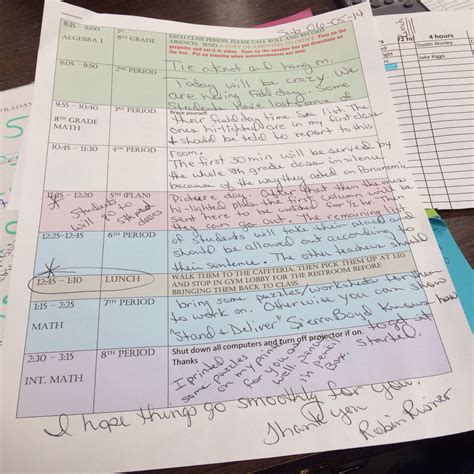 Sub 06-05-14
8:15 – 9:00 1st EACH CLASS PERIOD, PLEASE CALL ROLL AND RECORD
ALGEBRA I 8TH GRADE ABSENCES. SEND A COPY OF ABSENTEES TO OFFICE. Turn on the
projector and set it to video. Turn up the speaker
the top. Put on standing when announcements are year.
9:05 – 9:50 2ND PERIOD Tie a knot and hang on.
Today will be crazy. We
are having field day. Some
Students have lost some of
9:55 – 10:40 3RD PERIOD Brace yourself.
their field day time. See list. The
8TH GRADE
MATH
ones hi-lighted are in my first class
& should be told to report to this
10:45 – 11:30 4TH PERIOD room.
The first 30 min will be served by
the whole 8th grade class in silence
because of the way they acted on Panoramic
11:35 – 12:20 5TH (PLAN) Picture day. After that then the ones
Students
will go to
classes
hi-lighted plus the first column will be
sent here to be timed for 1/2 hr. Then
they can go out. The remaining
12:25-12:45 6TH PERIOD of students will take their place and
should be allowed out according to
their sentence. The other teachers should
12:45 – 1:10 LUNCH WALK THEM TO THE CAFETERIA, THEN PICK THEM UP AT 1:10
AND STOP IN GYM LOBBY FOR THE RESTROOM BEFORE
BRINGING THEM BACK TO CLASS.
1:15 – 2:25 7TH PERIOD bring some puzzles/worksheets for them
MATH
to work on. Otherwise you can show
"Stand & Deliver" Sierra Boyd knows how
to get it
started.
2:30 – 3:15 8TH PERIOD Shut down all computers and turn off projector if on.
Thanks
INT. MATH
I printed
some puzzles
on my printer
for you as
well. pencils
in pencil
Box.
I hope things go smoothly for you.
Thank you
Robin Rivier
4 hours
Dustin Worley
Jake Riggs